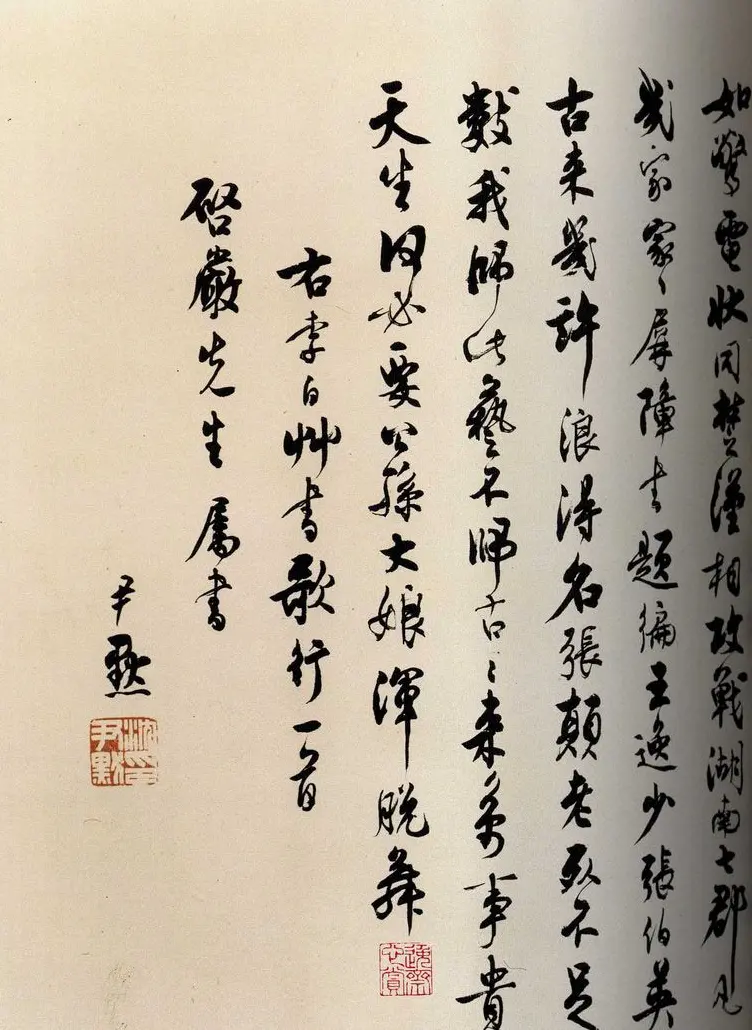 如驚電狀同楚漢相攻戰湖南七郡凡
幾家家〻屏障書題徧王逸少張伯英
古来幾許浪得名張顛老死不足
數我師此藝不師古〻来萬事貴
天生何必要公孫大娘渾脱舞
右李白艸書歌行一首
啓嚴先生屬書
尹默